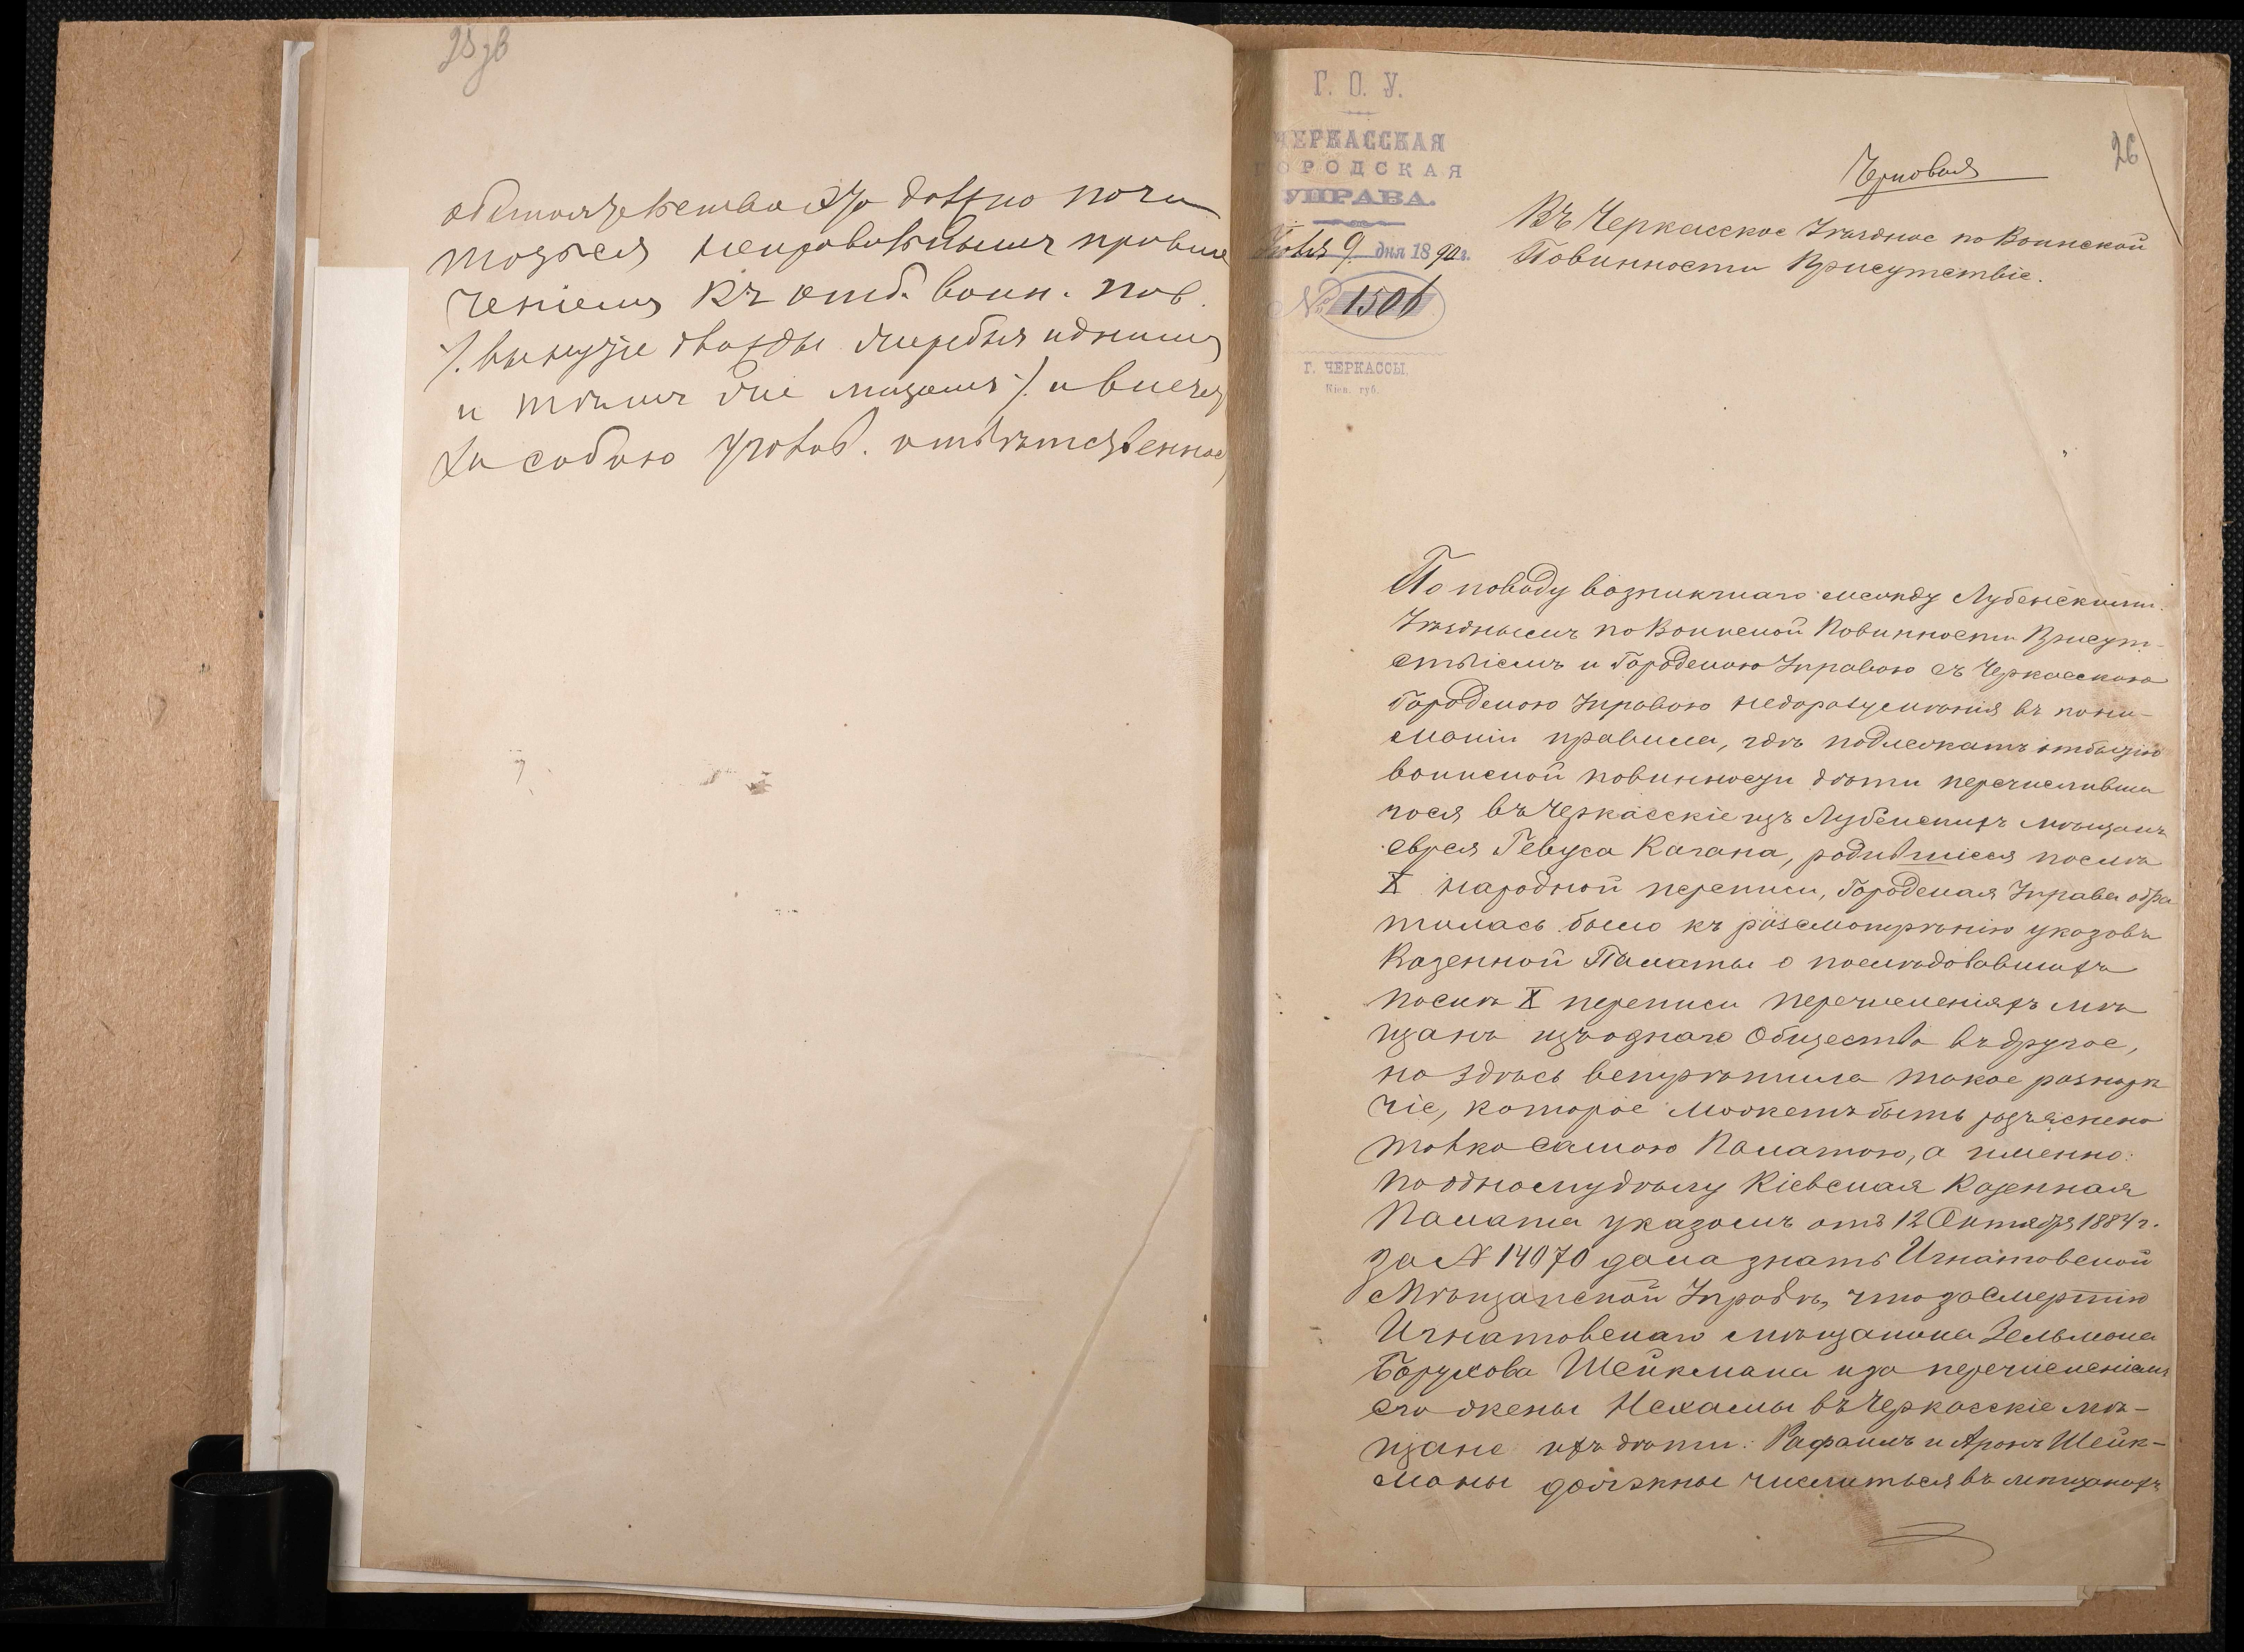 25 зв
обстоятельства это должно почи
таться неправильнымъ привле
ченіемъ къ отб. воин. пов.
/. вынутіе дважды жеребья однимъ
и тѣмъ же лицомъ ./ и влечетъ
за собою уголов. отвѣтственнос
Г. О. У.
ЧЕРКАССКАЯ
ГОРОДСКАЯ
УПРАВА.
Іюля 9 дня 1890 г.
№ 1506
Г. ЧЕРКАССЫ,
Кіев. губ.
26
Черновая
Въ Черкасское Уѣздное по Воинской
Повинности Присутствіе.
По поводу возникшаго между Лубенскимъ
Уѣзднымъ по Воинской Повинности Присут-
ствіемъ и Городскою Управою съ Черкасскою
Городскою Управою недоразумѣнія въ пони-
маніи правила, гдѣ подлежатъ отбытію
воинской повинности дѣти перечисливша
гося въ Черкасскіе изъ Лубенскихъ мѣщанъ
еврея Гевуса Кагана, родившіеся послѣ
X народной переписи, Городская Управа обра
тилась было къ разсмотрѣнію указовъ
Казенной Палаты о послѣдовавшихъ
послѣ X переписи перечисленіяхъ мѣ
щанъ изъ одного Общества въ другое,
но здѣсь встрѣтила такое разнорѣ
чіе, которое можетъ быть разъяснено
только самою Палатою, а именно:
по одному дѣлу Кіевская Казенная
Палата указомъ отъ 12 Октября 1884 г.
за № 14070 дала знать Игнатовской
Мѣщанской Управѣ, что за смертію
Игнатовскаго мѣщанина Зельмана
Борухова Шейкмана и за перечисленіемъ
его жены Нехамы въ Черкасскіе мѣ-
щане ихъ дѣти: Рафаилъ и Аронъ Шейк-
маны должны числиться въ мѣщанахъ